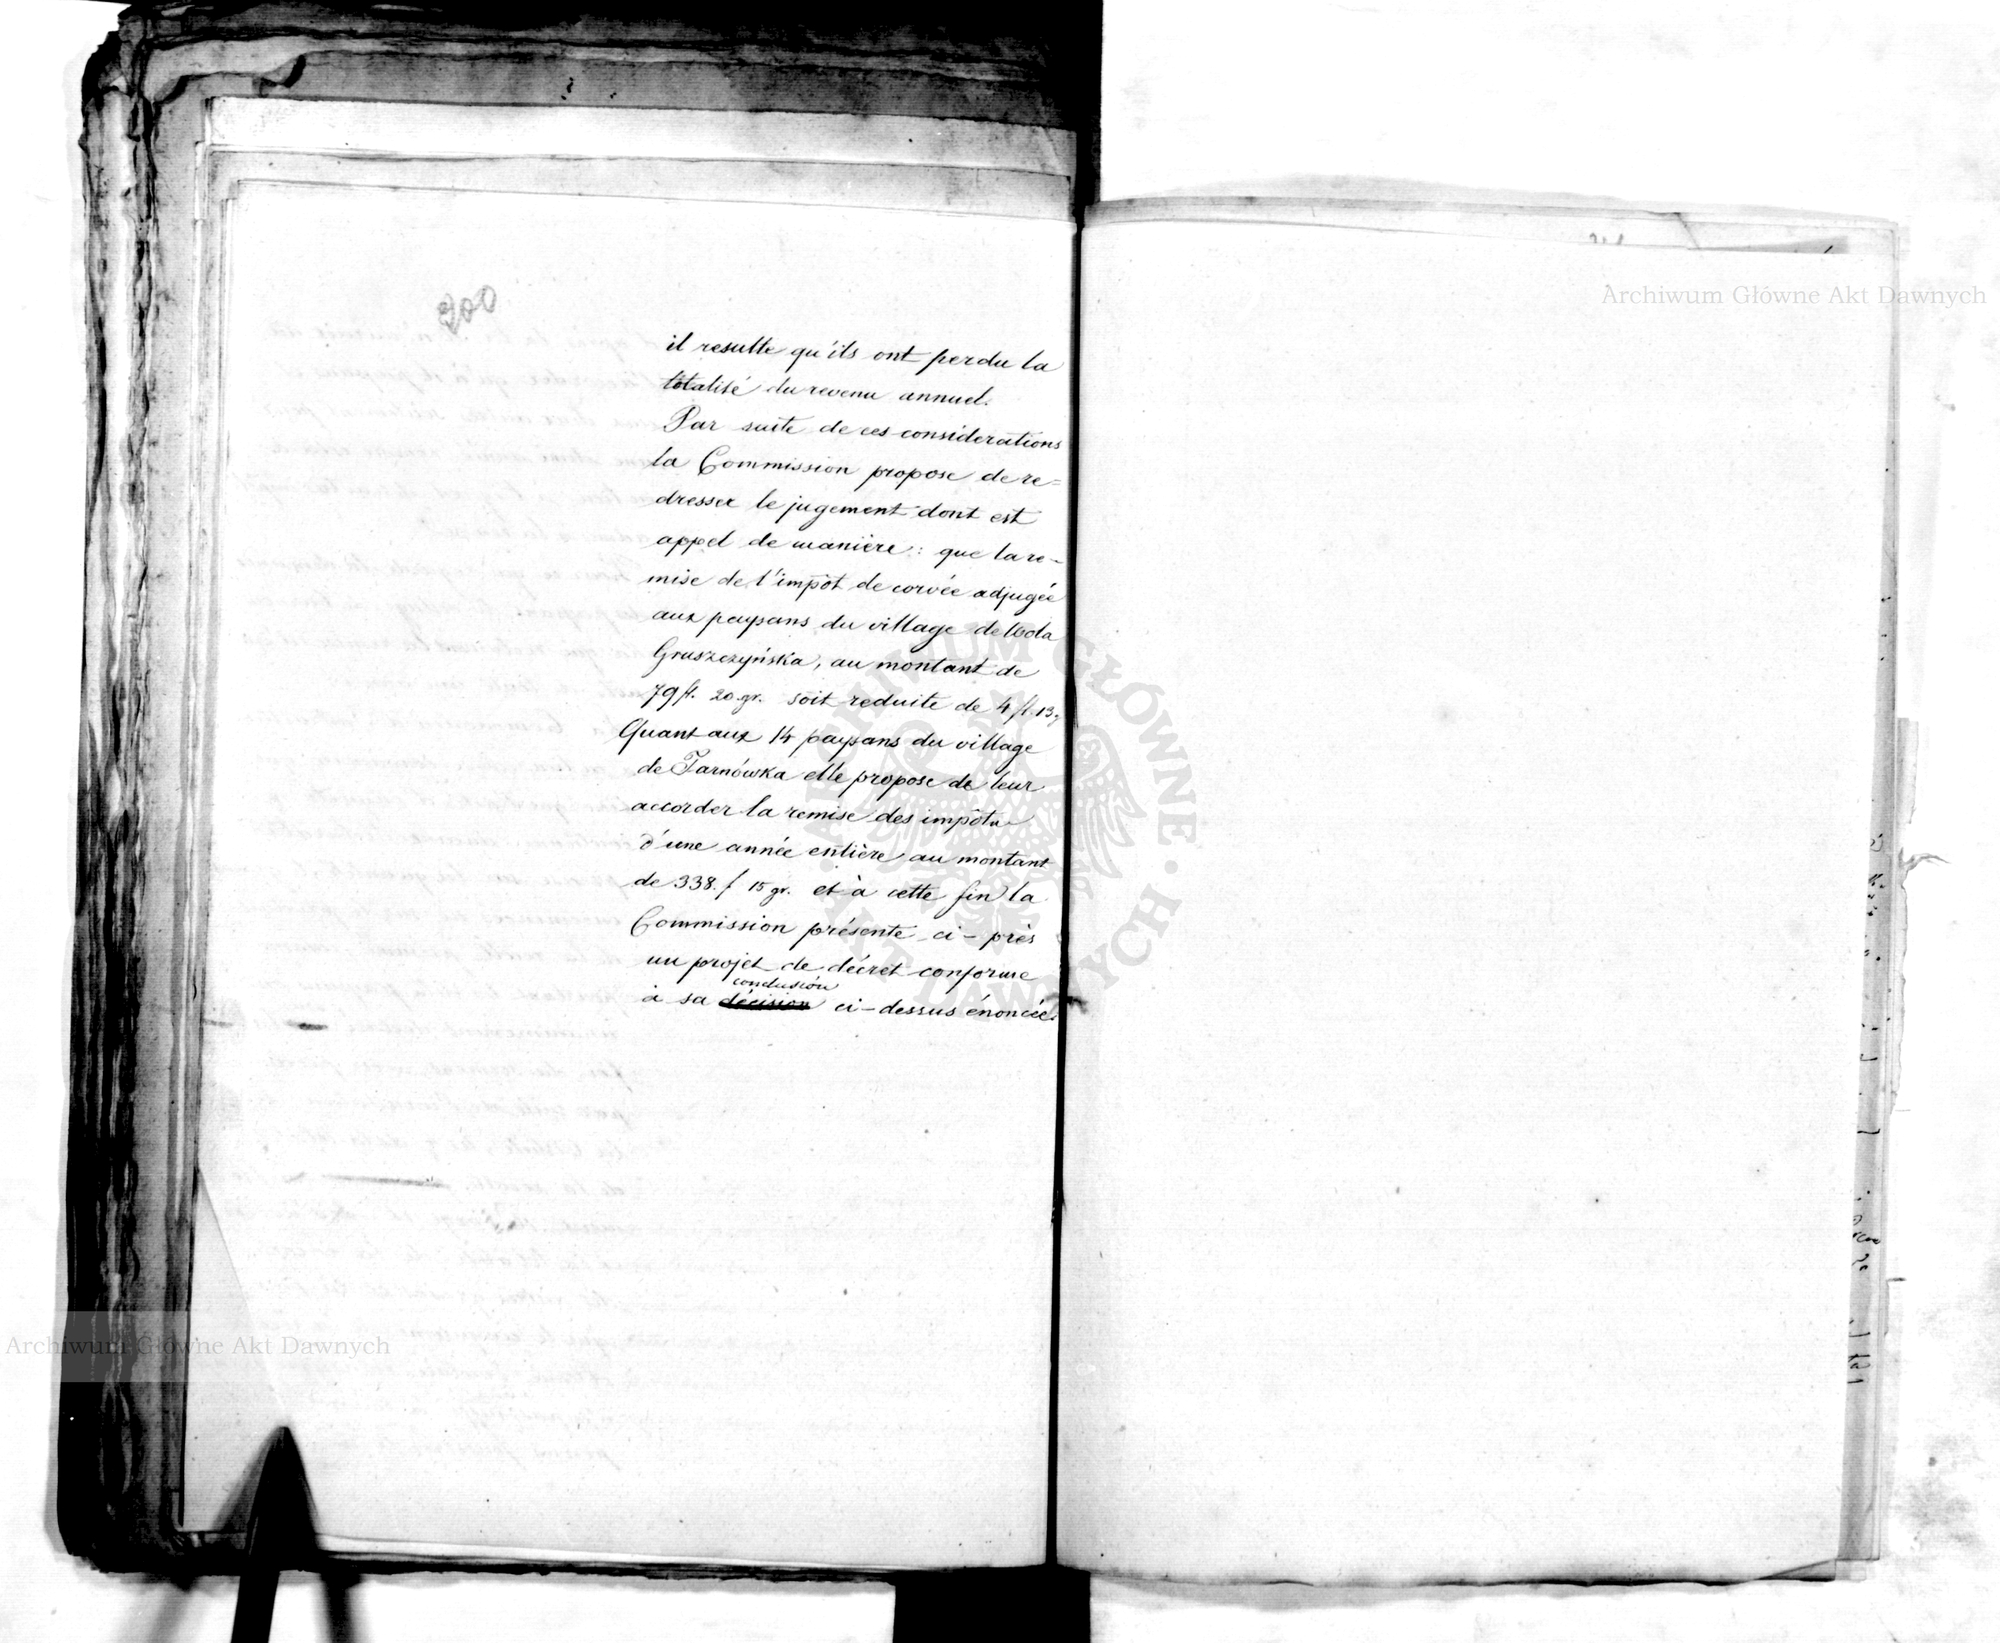 200
il resulte qu'ils ont perdu la
totalité du revenu annuel.
Par suite de ces considerations
la Commission propose de re=
dresser le jugement dont est
appel de manière : que la re-
mise de l'impôt de corvée adjugée
aux paysans du village de Wola
Gruszczyńska, au montant de
79 fl. 20 gr. soit reduite de 4 fl. 13 g
Quant aux 14 paysans du village
de Tarnówka elle propose de leur
accorder la remise des impôts
d'une année entière au montant
de 338. f 15 gr. et à cette fin la
Commission présente ci-près
un projet de décret conforme
conclusion
à sa décision ci-dessus énoncée.
Archiwum Główne Akt Dawnych
Archiwum Główne Akt Dawnych
ARCHIWUM GŁÓWNE AKT DAWNYCH